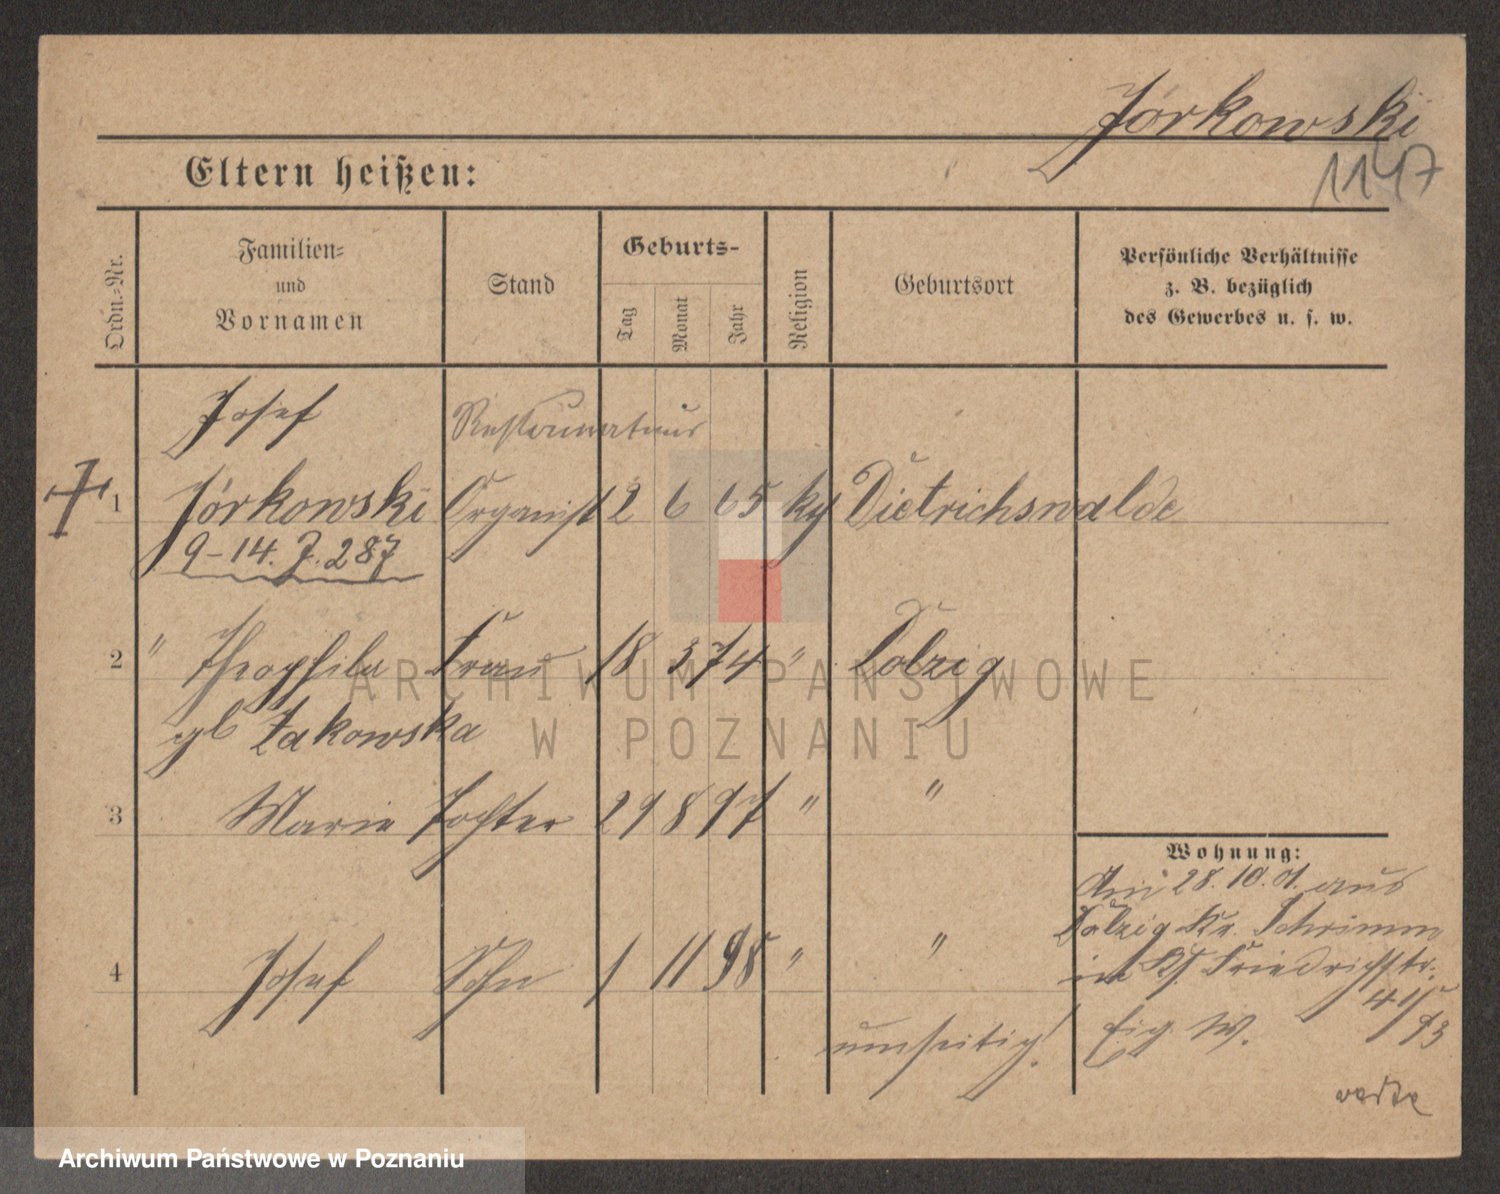 Jórkowski
1147
Eltern heißen:
Ordn.=Nr.
Familien=
und
Vornamen
Stand
Geburts-
Tag
Monat
Jahr
Religion
Geburtsort
Persönliche Verhältnisse
z. B. bezüglich
des Gewerbes u. s. w.
Josef
1 Jórkowski Organist 2 6 65 Dietrichswalde
9-14. J. 287
2 " Theophila Frau 18 3 74 " Dolzig
Zakowska
3 Marie Tochter 29 8 97 " "
Wohnung:
Am 28. 10. 01. aus
Dolzig Kr. Schrimm
in Friedrichstr.
4 Josef Sohn 1 11 98 " "
umseitig!
Eig. W.
ARCHIWUM PAŃSTWOWE
W POZNANIU
Archiwum Państwowe w Poznaniu